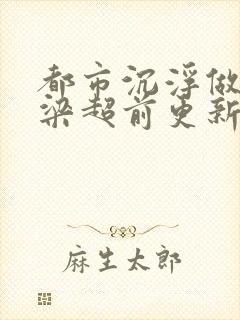 都市沉浮做
梁超前更新
麻生太郎